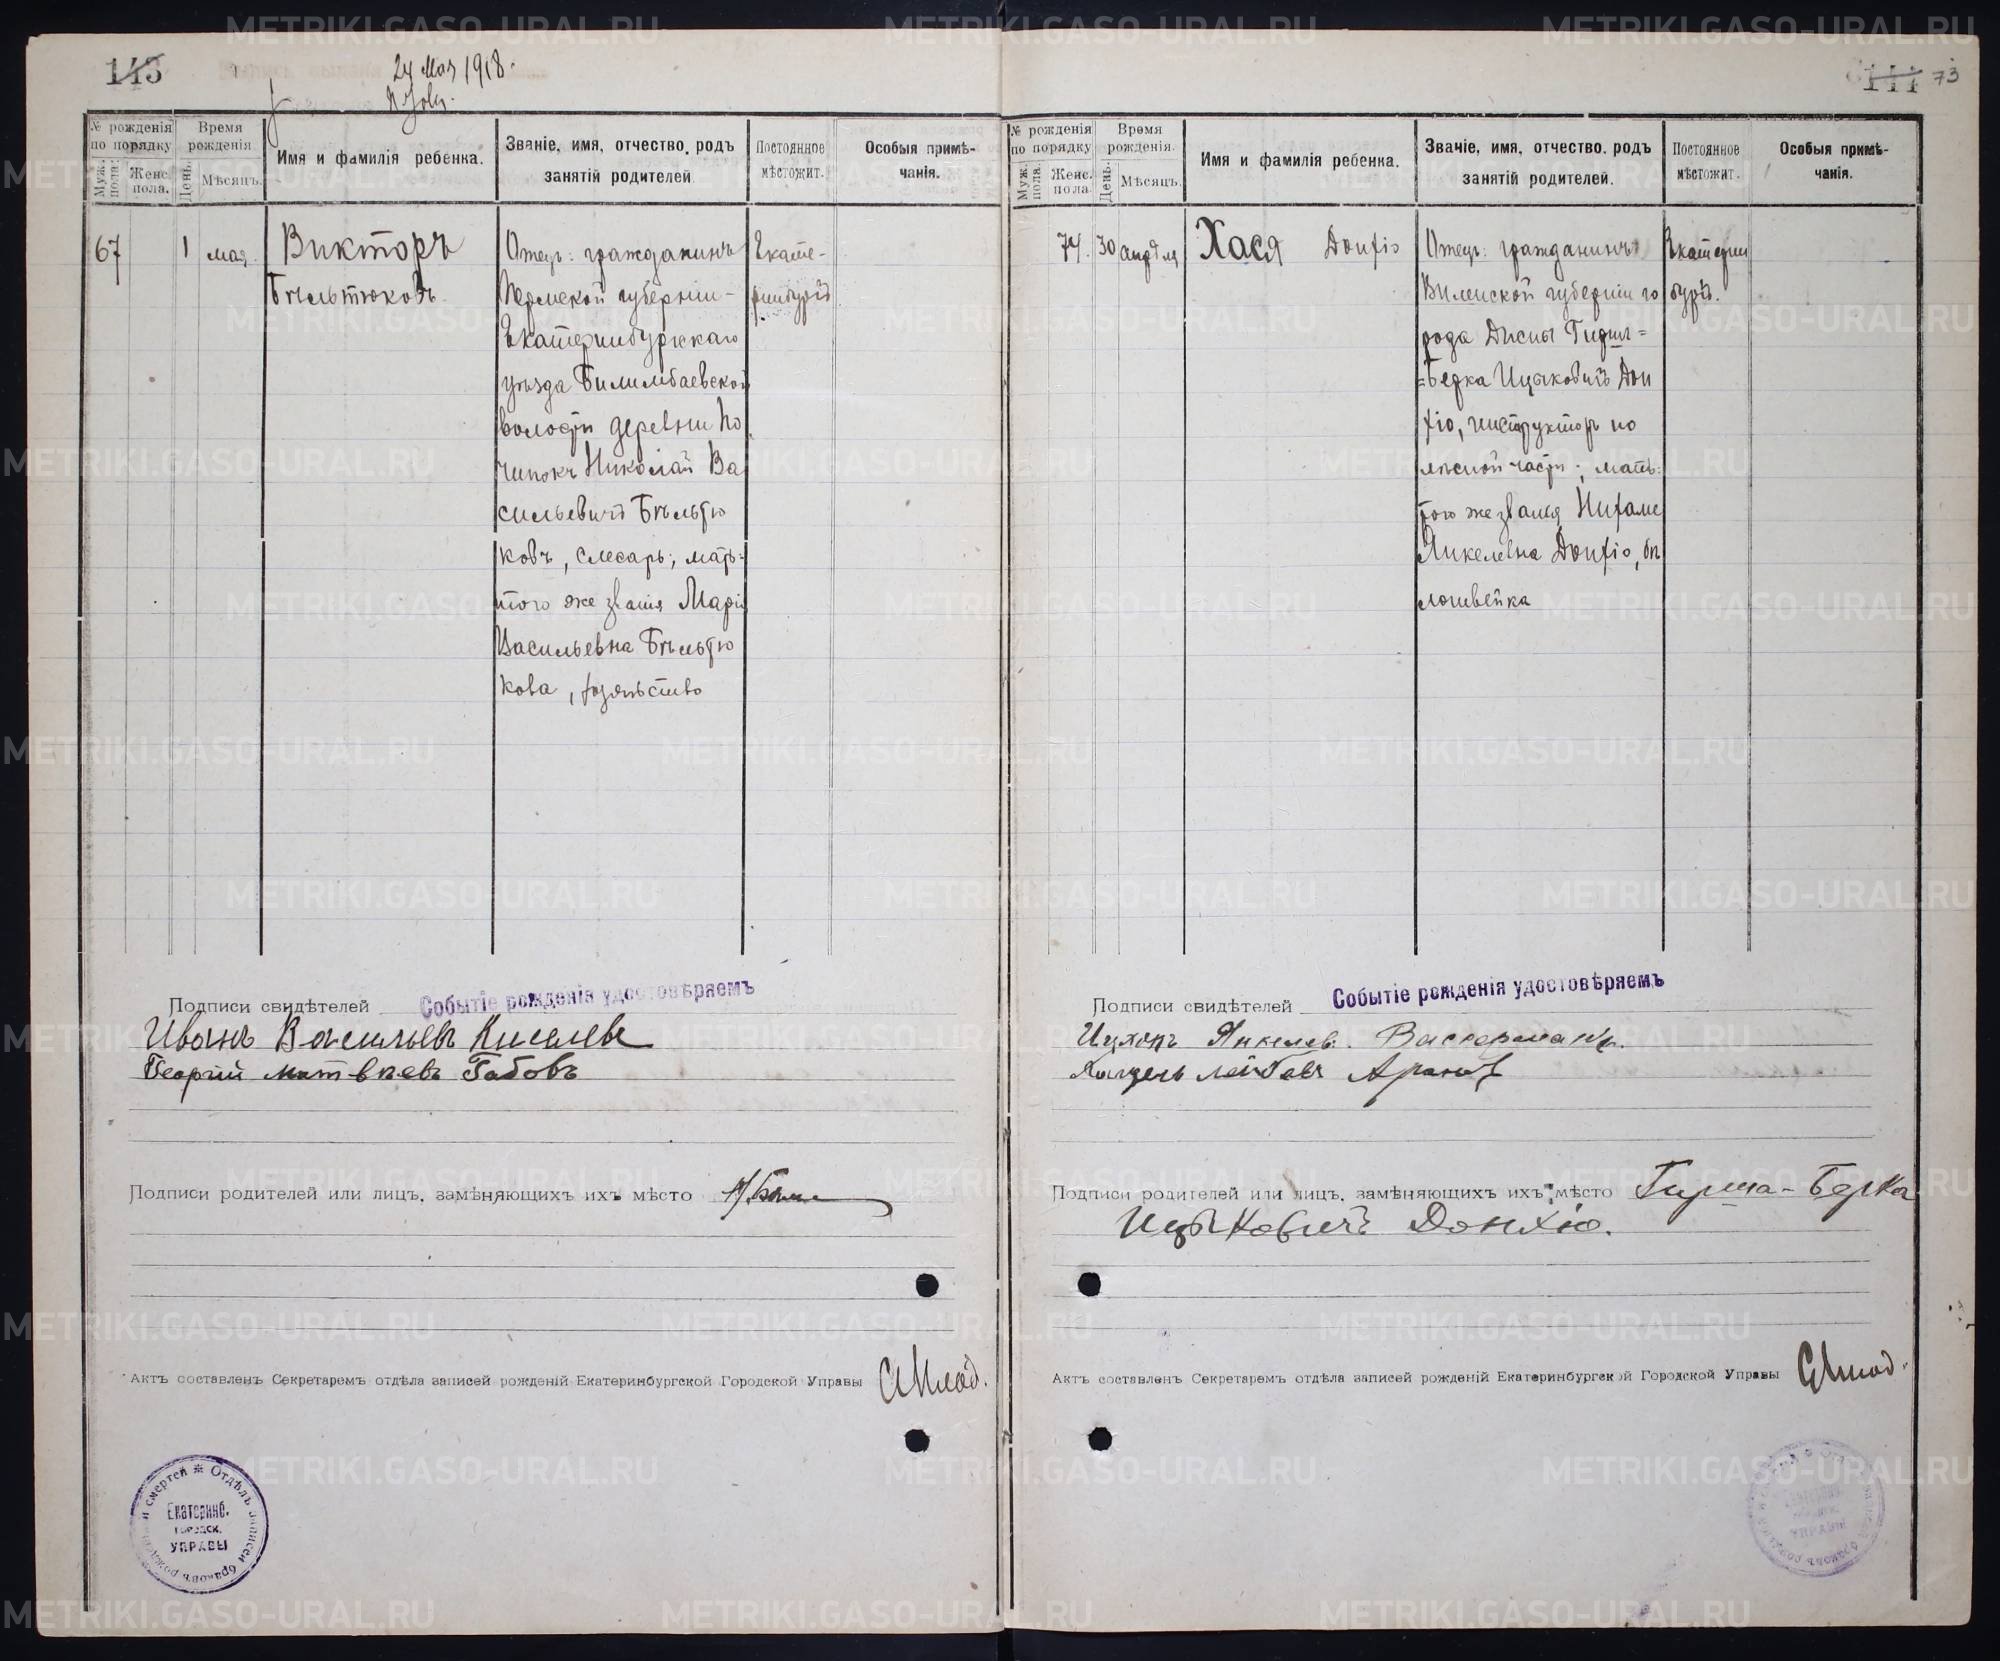 143
24 Мая 1918.
№ рожденія по порядку
Муж. пола.
Женс. пола.
Время рожденія
День.
Мѣсяцъ.
Имя и фамилія ребенка.
Званіе, имя, отчество, родъ занятій родителей
Постоянное мѣстожит.
Особыя примѣчанія.
67
1
мая.
Викторъ
Бѣльтюковъ
Отецъ: гражданинъ
Пермской губерніи
Екатеринбургскаго
уѣзда Билимбаевской
волости деревни По
чинокъ Николай Ва
сильевичъ Бѣльтю
ковъ, слесарь; мать-
того же званія Марія
Васильевна Бѣльтю
кова, хозяйство
Екате-
ринбургъ
Подписи свидѣтелей
Событіе рожденія удостовѣряемъ
Иванъ Васильевъ Киселевъ
Георгій Матвѣевъ Габовъ
Подписи родителей или лицъ, замѣняющихъ ихъ мѣсто
Актъ составленъ Секретаремъ отдѣла записей рожденій Екатеринбургской Городской Управы
Отдѣлъ записей браковъ рожденій и смертей
Екатеринб.
городск.
УПРАВЫ
144
73
№ рожденія по порядку
Муж. пола.
Женс. пола
Время рожденія.
День.
Мѣсяцъ.
Имя и фамилія ребенка.
Званіе, имя, отчество, родъ занятій родителей.
Постоянное мѣстожит.
Особыя примѣчанія.
74.
30
апрѣля
Хася Донхіо
Отецъ: гражданинъ
Виленской губерніи го
рода Дисны Гирш=
=Берка Ицыковичъ Дон
хіо, инструкторъ по
лѣсной части; мать:
того же званія Нихаме
Янкелевна Донхіо, бѣ
лошвейка
Екатерин
бургъ.
Подписи свидѣтелей
Событіе рожденія удостовѣряемъ
Янкелев. Васкерманъ.
Подписи родителей или лицъ, замѣняющихъ ихъ мѣсто
Гирша-Берка
Ицыковичъ Донхіо.
Актъ составленъ Секретаремъ отдѣла записей рожденій Екатеринбургской Городской Управы
УПРАВЫ
METRIKI.GASO-URAL.RU